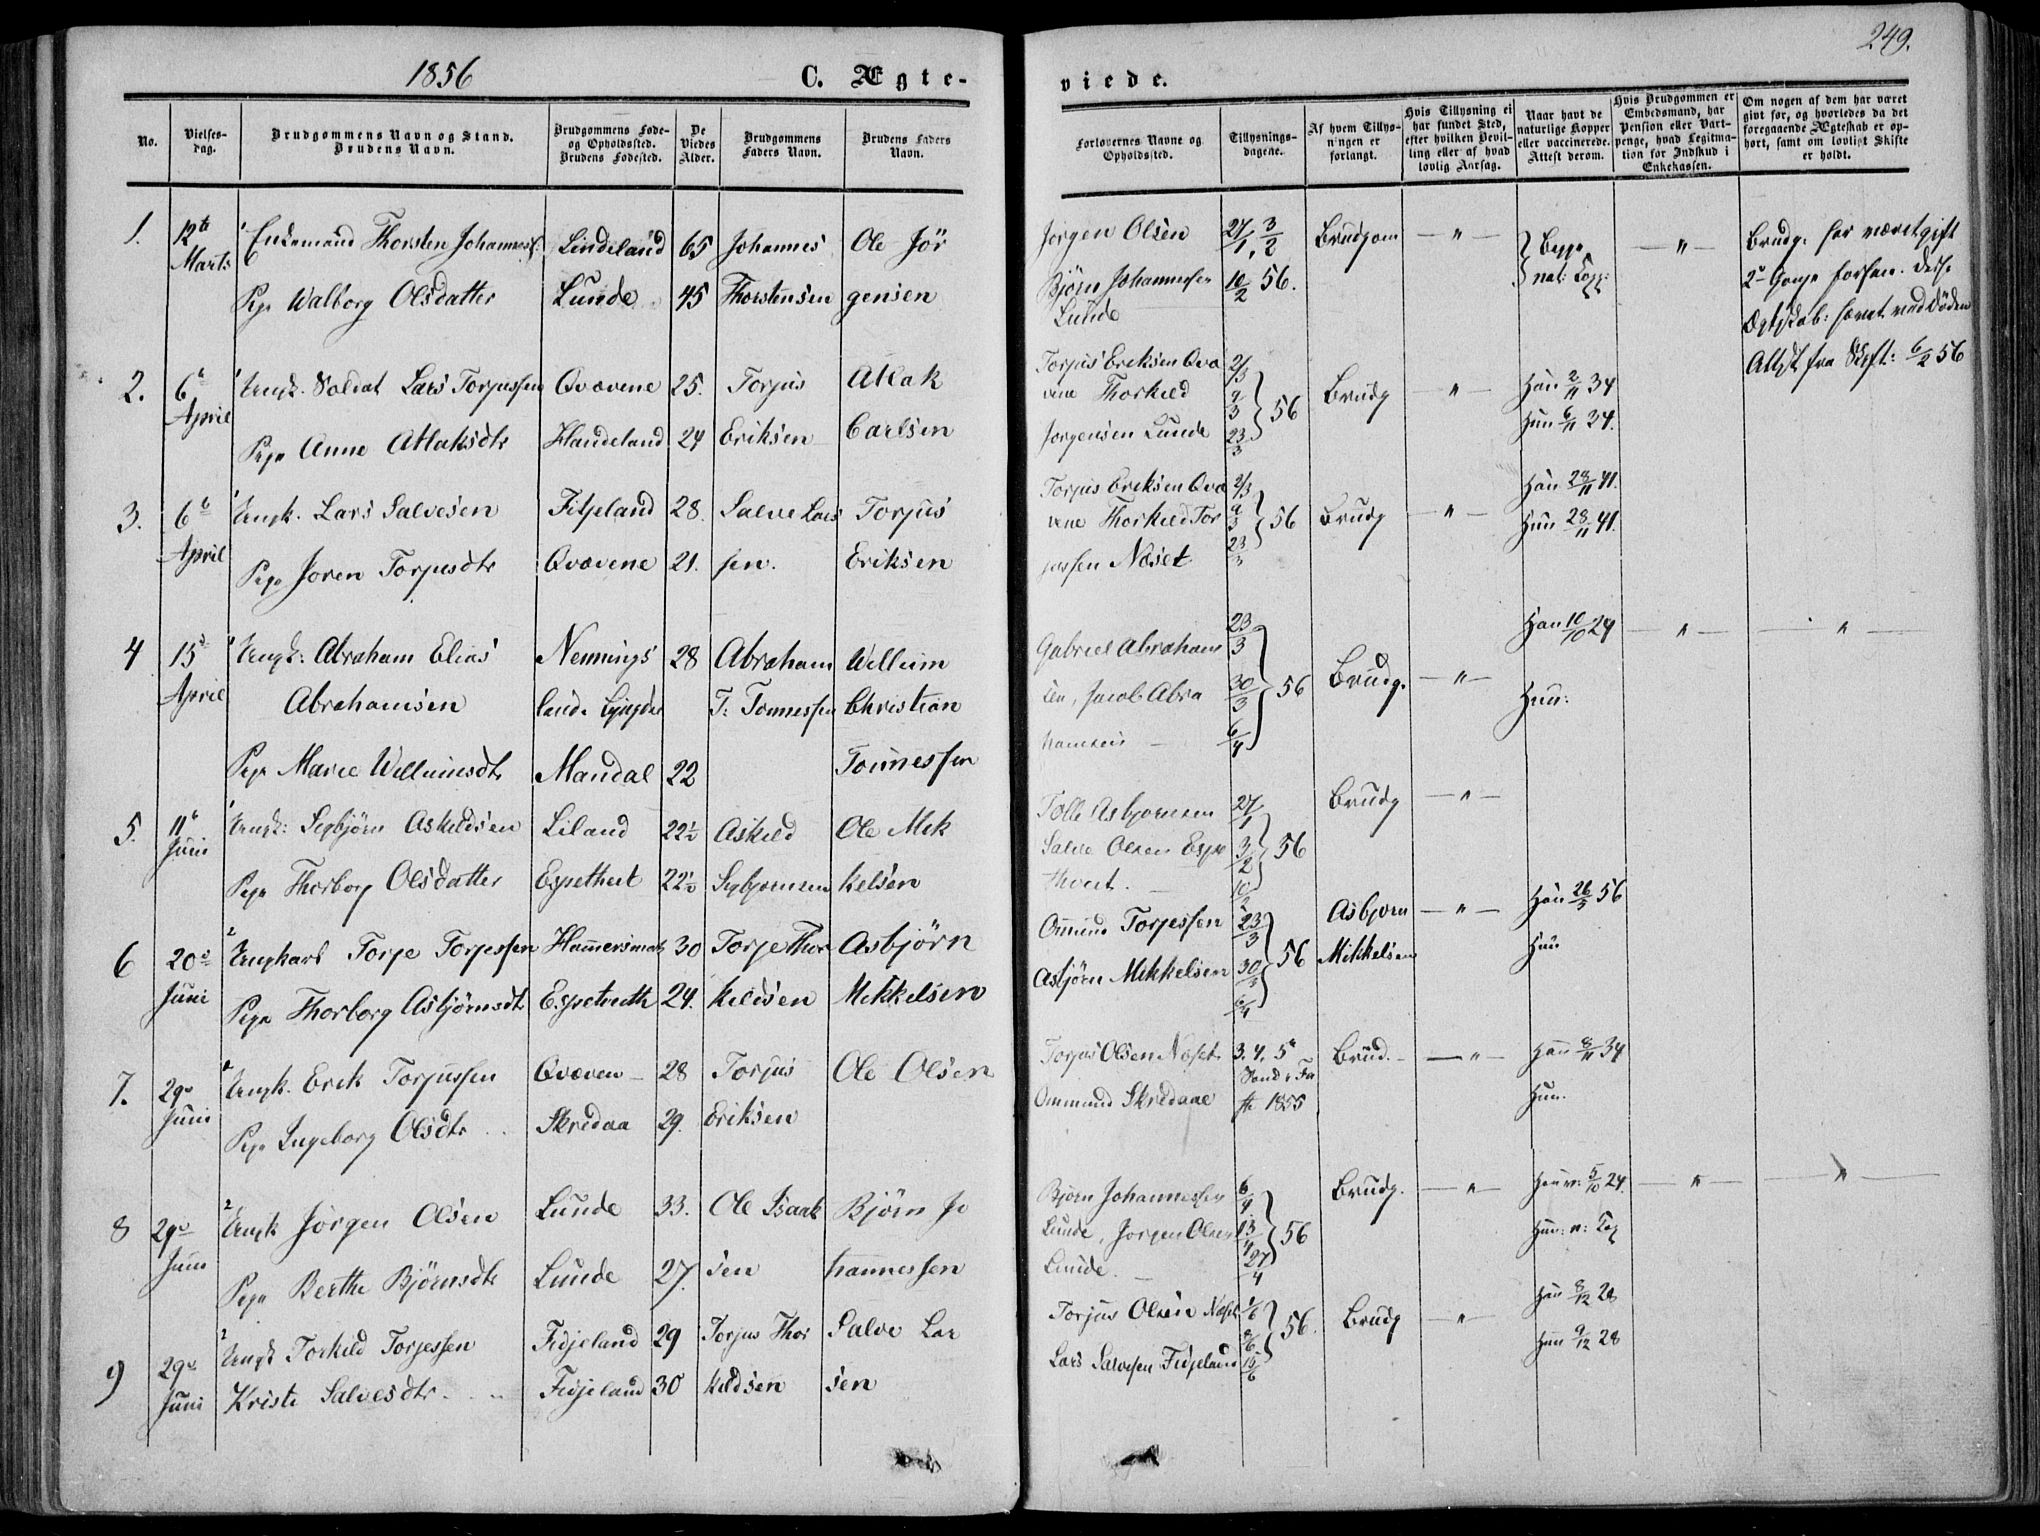 1856
C. Ægte-
No.
Vielses-
dag.
Brudgommens Navn og Stand.
Brudens Navn.
Brudgommens Føde-
og Opholdssted.
Brudens Fødested.
De
Viedes
Alder.
Brudgommens
Faders Navn.
Brudens Faders
Navn.
1. 12te Enkemand Thorsten Johannes Lindeland 65 Johannes Ole Jör
Marts Pige Walborg Olsdatter Lunde 45 Thorstensen gensen
2. 6 Ungk. Soldat Lars Torjussen Qvævene 25. Torjus Atlak
April Pige Anne Atlaksdtr Haudeland 24 Eriksen Carlsen
3. 6 Ungk. Lars Salvesen Fitjeland 28. Salve Lars Torjus
April Pige Joren Torjusdtr Qvævene 21. sen. Eriksen
4 15 Ungk: Abraham Elias Nennings 28 Abraham Wellum
April Abrahamsen land Lyngdal T: Tonnessen Christian
Pige Marie Wellumsdtr Mandal 22 Tonnessen
5. 11 Ungk: Segbjörn Askildsen Liland 22½ Askild Ole Mik
Juni Pige Thorborg Olsdatter Espethvet 22½ Segbjornsen kelsen
6 20 Ungkarl Torje Torjessen Hammersmark 30 Torje Thor Asbjörn
Juni Pige Thorborg Asbjörnsdtr Espetveth 24. kildsen Mikkelsen
7. 29 Ungk. Erik Torjussen Qvæven 28 Torjus Ole Olsen
Juni Pige Ingeborg Olsdtr Skredaa 29. Eriksen
8 29 Ungk Jörgen Olsen Lunde 33. Ole Isaak Björn Jo
Juni Pige Berthe Björnsdtr Lunde 27. sen hannessen
9 29 Ungk Torkild Torjessen Fidjeland 29 Torjus Thor Salve Lar
Juni Kristi Salvesdtr Fidjeland 30 kildsen sen
249.
viede.
Forlovernes Navne og
Opholdssted.
Tillysnings-
dagene.
Af hvem Tillys-
ningen er
forlangt.
Hvis Tillysning ei
har fundet Sted,
efter hvilken Bevil-
ling eller af hvad
lovlig Aarsag.
Naar havt de
naturlige Kopper
eller vaccinerede.
Attest derom.
Hvis Brudgommen er
Embedsmand, har
Pension eller Vart-
penge, hvad Legitima-
tion for Indskud i
Enkekassen.
Om nogen af dem har været
gift før, og hvorledes da det
foregaaende Ægteskab er op-
hørt, samt om lovligt Skifte
er holdt.
Jörgen Olsen 27/1, 3/2 Brudgom — " — Begge — " — Brudg. har været gift
Björn Johannessen 10/2 56. nat: Kopp: 2 Gange forhen. Disse
Lunde Ægtskab: hævet ved Döden
Attest fra Skift: 6/2 56
Torjus Eriksen Qvæ 2/3
vene Thorkild 9/3 56 Brudg — " — Han 2/11 34
Jorgensen Lunde 23/3 Hun 6/11 34.
Torjus Eriksen Qvæ 2/3 Han 28/11 41.
vene Thorkild Tor 9/3 56 Brudg — " — Hun 28/11 41.
jussen Næset 23/3
Gabriel Abraham 23/3 Han 10/10 29 — " — — " —
sen, Jacob Abra 30/3 56 Brudg. — " — Hun:
hamsen — 6/4
Tolle Asbjornsen 27/1 Brudg — " —
Salve Olsen Espe 3/2 56
thvet. 10/2
Ommund Torjessen 23/3 Asbjorn — " — Han 26/3 56
Asbjörn Mikkelsen 30/3 56 Mikkelsen Hun
6/4
Torjus Olsen Næset 3. 4. 5 Brud. — " — Han 8/11 34
Ommund Skredaae Sond. i Fa
ste 1855 Hun.
Bjorn Johannessen 6/4 Brudg. — " — Han v: 5/10 24. — " — — " —
Lunde, Jorgen Olsen 13/4 56 Hun: n: Kop
Lunde. 27/4
Torjus Olsen Næset 1/6 Han 8/12 28
8/6 56. Brudg " Hun 9/12 28
Lars Salvesen Fidjeland 15/6